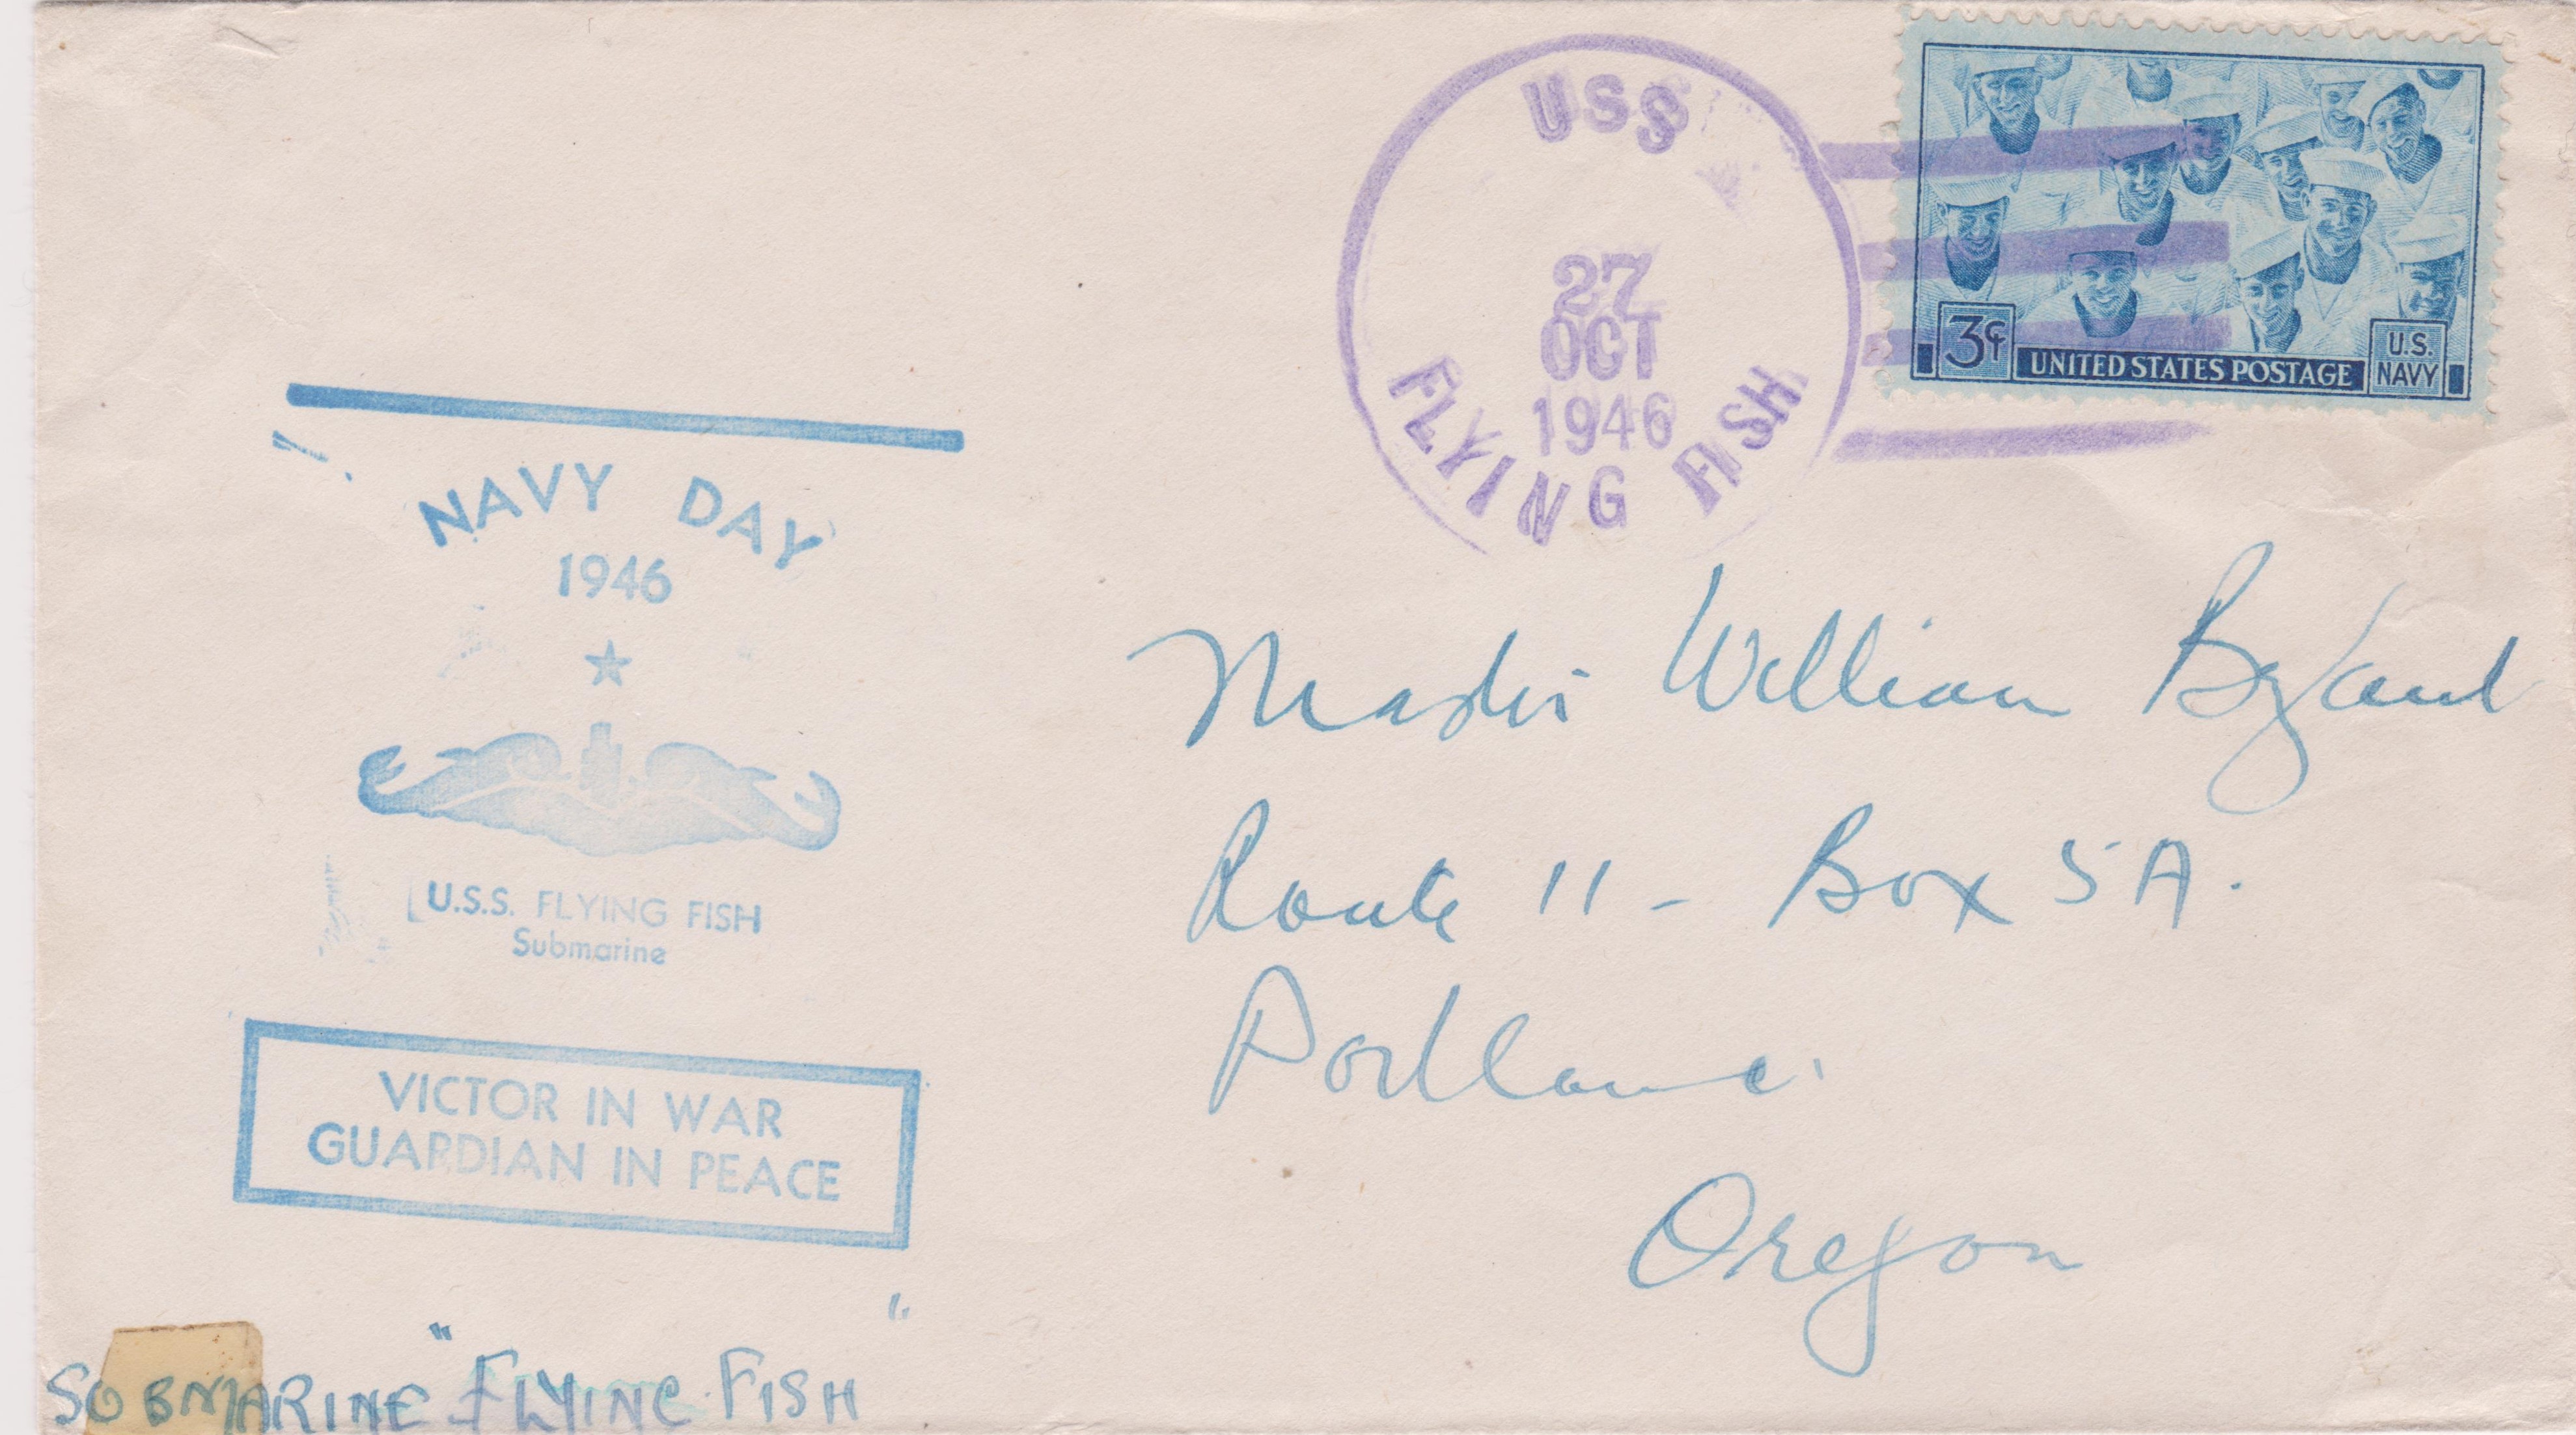 USS
27
OCT
1946
FLYING FISH
3¢
UNITED STATES POSTAGE
U.S.
NAVY
NAVY DAY
1946
U.S.S. FLYING FISH
Submarine
VICTOR IN WAR
GUARDIAN IN PEACE
Master William
Route 11 - Box 5A.
Portland.
Oregon
SUBMARINE "FLYING FISH"